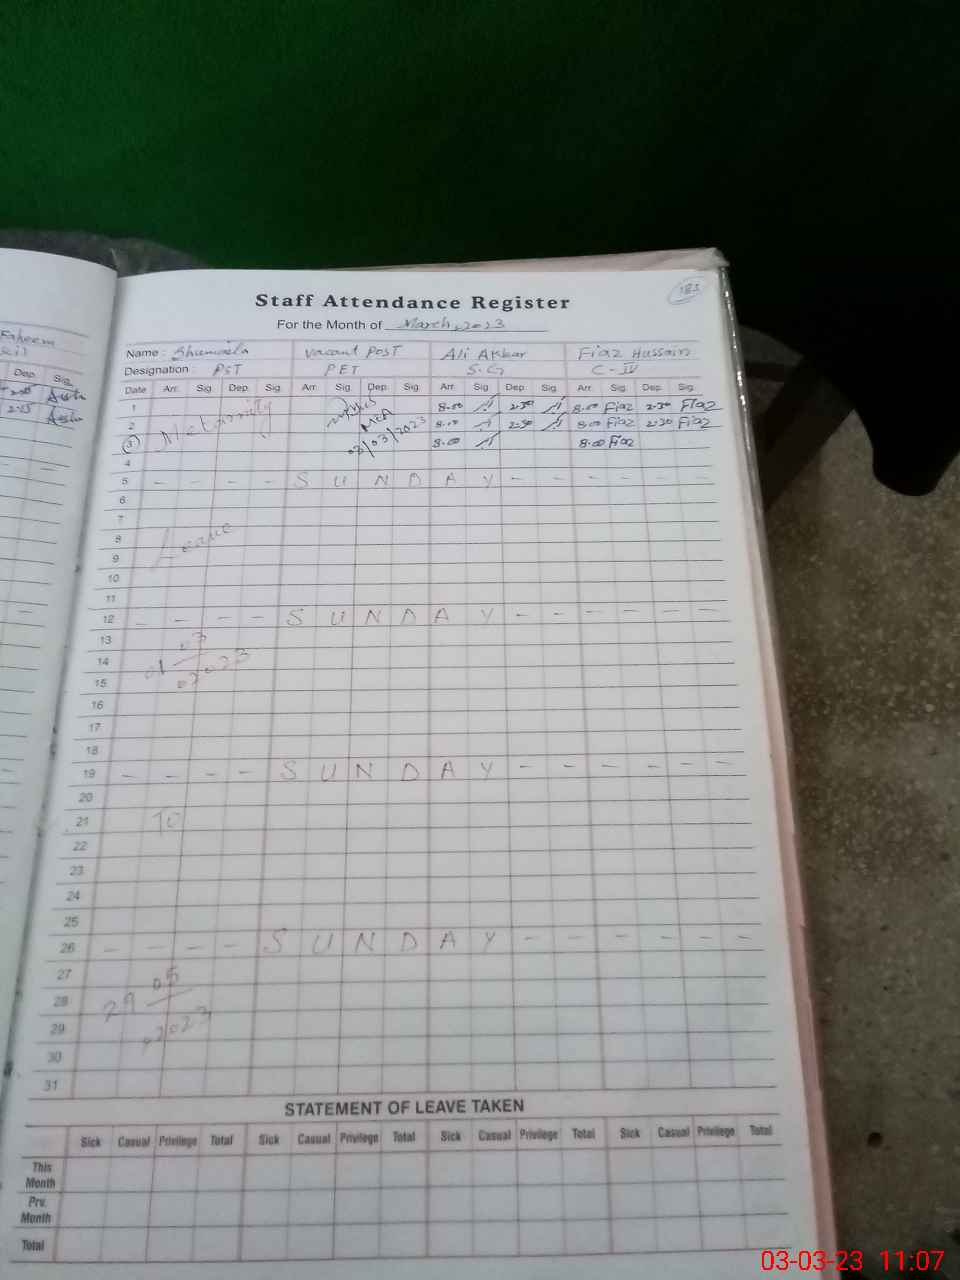 181
Staff Attendance Register
For the Month of March, 2023
Faheem
Name : Shumaila Vacant Post Ali Akbar Fiaz Hussain
Designation : PST PET S.G C-IV
Dep. Sig.
Date Arr. Sig. Dep. Sig. Arr. Sig. Dep. Sig. Arr. Sig. Dep. Sig. Arr. Sig. Dep. Sig.
1 8.00 2.30 8.00 Fiaz 2.30 Fiaz
2 Meternity MEA 8.00 2.30 8.00 Fiaz 2.30 Fiaz
3 03/03/2023 8.00 8.00 Fiaz
4
5 - - - - S U N D A Y - - - - - -
6
7
8 Leave
9
10
11
12 - - - - S U N D A Y - - - - - -
13
14 01 03 2023
15
16
17
18
19 - - - - S U N D A Y - - - - - -
20
21 To
22
23
24
25
26 - - - - S U N D A Y - - - - - -
27
28 29 05 2023
29
30
31
STATEMENT OF LEAVE TAKEN
Sick Casual Privilege Total Sick Casual Privilege Total Sick Casual Privilege Total Sick Casual Privilege Total
This Month
Prv. Month
Total
03-03-23 11:07